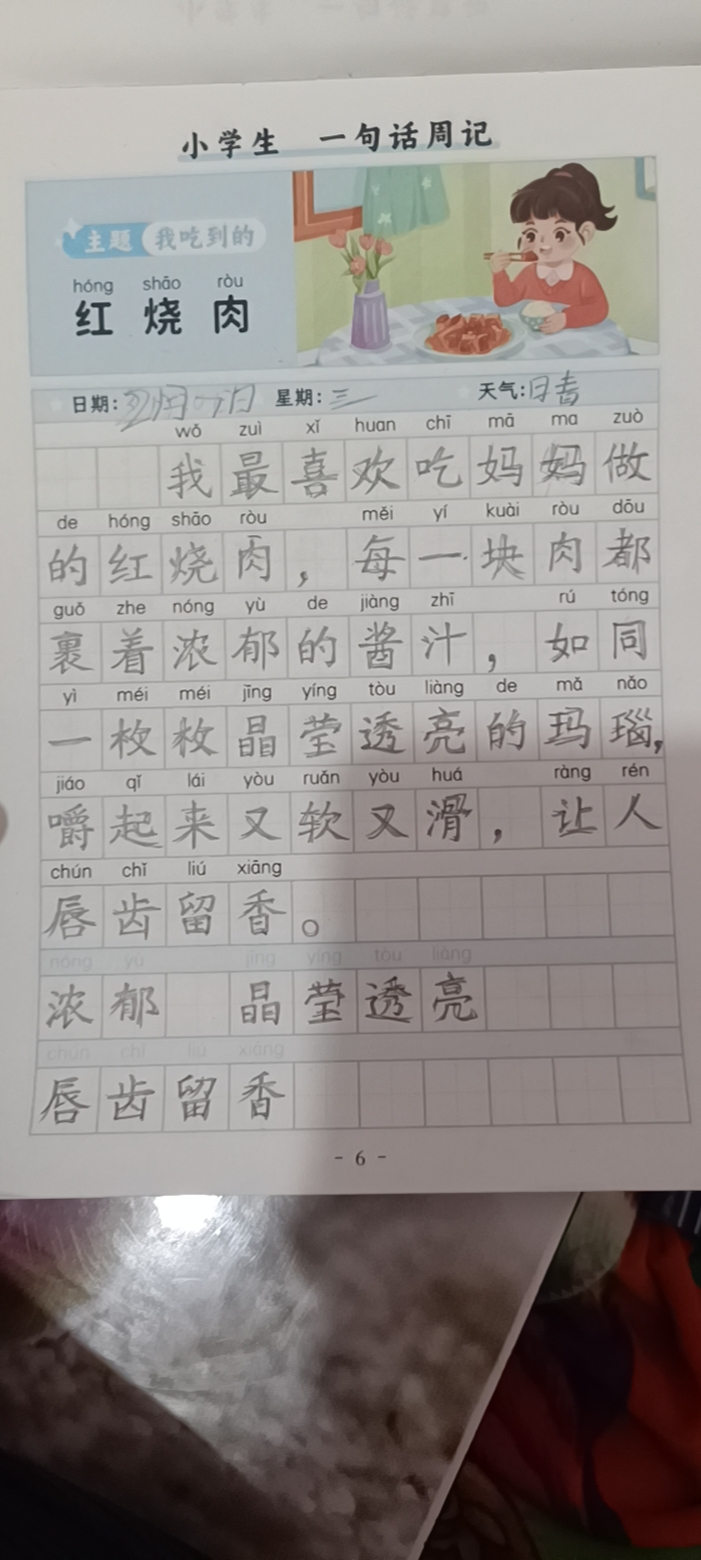 小学生 一句话周记
主题 我吃到的
hóng shāo ròu
红烧肉
日期: 星期:三 天气:日青
wǒ zuì xǐ huan chī mā ma zuò
我最喜欢吃妈妈做
de hóng shāo ròu měi yí kuài ròu dōu
的红烧肉，每一块肉都
guǒ zhe nóng yù de jiàng zhī rú tóng
裹着浓郁的酱汁，如同
yì méi méi jīng yíng tòu liàng de mǎ nǎo
一枚枚晶莹透亮的玛瑙，
jiáo qǐ lái yòu ruǎn yòu huá ràng rén
嚼起来又软又滑，让人
chún chǐ liú xiāng
唇齿留香。
nóng yù jīng yíng tòu liàng
浓郁 晶莹透亮
chún chǐ liú xiāng
唇齿留香
- 6 -